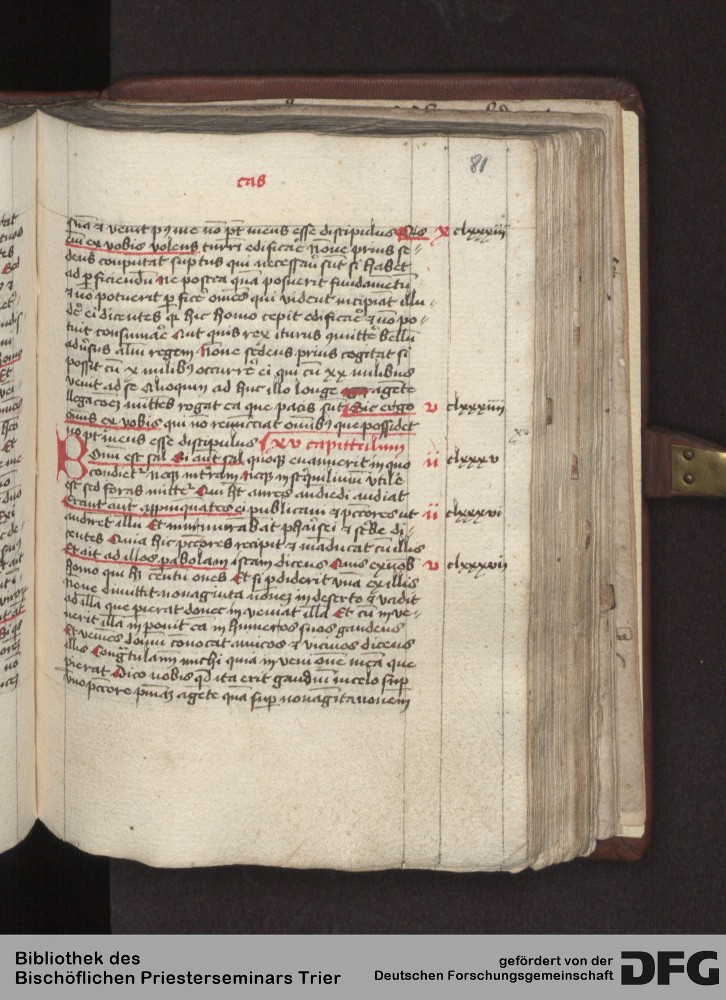 cas
81
sua̅ ⁊ venit p⁹ me no̅ pt̅ meus esse discipulus Q̅uis x clxxxiii
eni̅ ex vobis volens turri̅ edificar̅e No̅ne prius se⸗
dens co̅putat su̅ptus qui necessarij su̅t si habet
ad ꝑficiendu̅ Ne postea qua̅ posuerit fundame̅tu̅
⁊ no̅ potuerit ꝑficer̅e om̅es qui vident incipia̅t illu⸗
der̅e ei dicentes qꝛ hic homo cepit edificar̅e ⁊ no̅ po⸗
tuit consumar̅e Aut quis rex iturus co̅mitter̅e bellu̅
adu̅sus aliu̅ regem No̅ne sedens prius cogitat si
possit cu̅ x milibus occurrer̅e ei qui cu̅ xx milibus
venit ad se Alioquin ad huc illo longe agete
llegaco̅em mittens rogat ea que pacis su̅t Sic ergo v clxxxiiii
om̅is ex vobis qui no̅ renunciat om̅ibus que possidet
no̅ pt̅ meus esse discipulus xv capittulum
Bonu̅ est sal Si aut̅ sal quoque euanuerit in quo ii clxxxv
condiet̅ neq̅ in terra̅ neq̅ in sterquiliniu̅ vtile
est sed foras mittet̅ Qui h̅t aures audiendi audiat
Erant aut̅ appi̅nquantes ei publicani ⁊ pc̅cores vt ii clxxxvi
audirent illu̅ Et murmurabat pharisei ⁊ scribe di⸗
centes Quia hic pc̅cores recipit ⁊ ma̅ducat cu̅ illis
Et ait ad illos pa̅bolam istam dicens Quis ex vob̅ v clxxxvii
homo qui h̅t centu̅ oues Et si ꝑdiderit vna̅ ex illis
No̅ne dimittit nonaginta noue̅ in deserto ⁊ vadit
ad illa̅ que pierat donec inueniat illa̅ Et cu̅ inue⸗
nerit illa̅ inponit ea̅ in humeros suos gaudens
Et veniens domu̅ conuocat amicos ⁊ vicinos dicens
illis Congr̅tulami̅ michi quia inueni oue̅ mea̅ que
pierat Dico vobis qd̅ ita erit gaudiu̅ in celo sup̅
vno pc̅core pnia̅ agete qua̅ sup̅ nonagi̅tanouem
Bibliothek des
Bischöflichen Priesterseminars Trier
gefördert von der
Deutschen Forschungsgemeinschaft
DFG